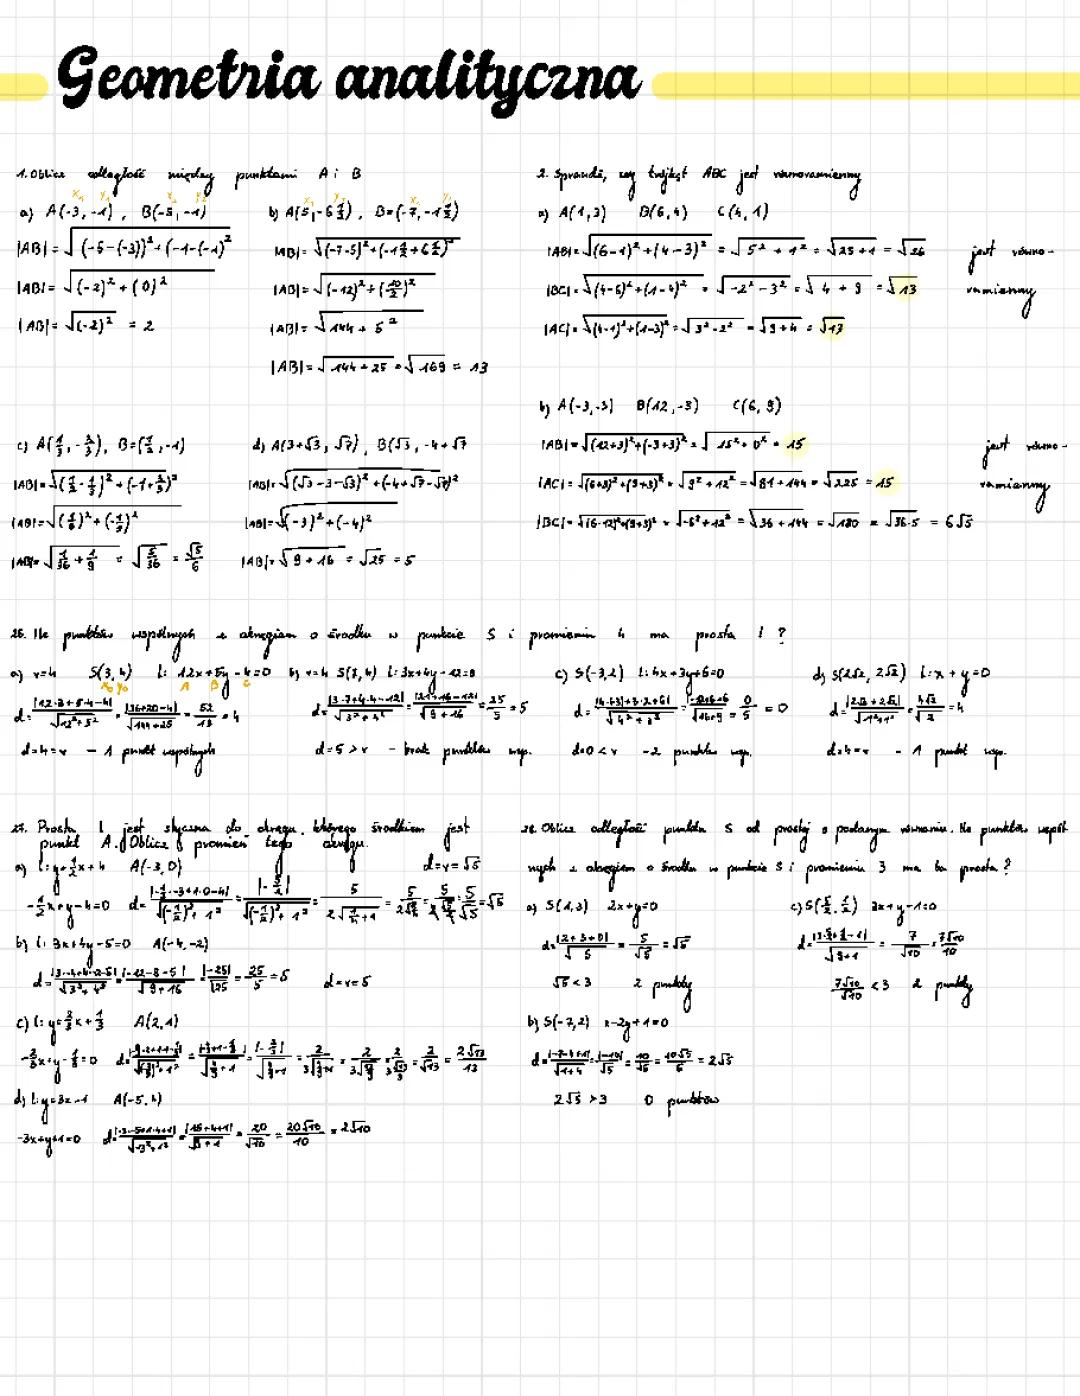 Geometria analityczna
1. Oblicz odległość między punktami A i B
a) A(-3, -1), B(-5, -1)
|AB| = √((-5-(-3))² + (-1-(-1))²
|AB| = √((-2)² + (0)²
|AB| = √(-2)² = 2
b) A(5, -6½), B=(-7, -1½)
|AB| = √((-7-5)² + (-1½+6½)²
|AB| = √((-12)² + (10/2)²
|AB| = √(144 + 5²
|AB| = √(144+25) = √169 = 13
c) A(⅓, -⅔), B=(½, -1)
|AB| = √((½-⅓)² + (-1+⅔)²
|AB| = √((⅙)² + (-⅓)²
|AB| = √(1/36 + 1/9) = √(5/36) = √5/6
d) A(3+√3, √7), B(√3, -4+√7
|AB| = √((√3-3-√3)² + (-4+√7-√7)²
|AB| = √((-3)² + (-4)²
|AB| = √(9+16) = √25 = 5
2. Sprawdź, czy trójkąt ABC jest równoramienny
a) A(1,3) B(6,4) C(4,1)
|AB| = √((6-1)² + (4-3)²) = √(5² + 1²) = √(25+1) = √26
|BC| = √((4-6)² + (1-4)²) = √(-2² - 3²) = √(4+9) = √13
|AC| = √((4-1)² + (1-3)²) = √(3² - 2²) = √(9+4) = √13
jest równo-
ramienny
b) A(-3,-3) B(12,-3) C(6,9)
|AB| = √((12+3)² + (-3+3)²) = √(15² + 0²) = 15
|AC| = √((6+3)² + (9+3)²) = √(9² + 12²) = √(81+144) = √225 = 15
|BC| = √((6-12)² + (9+3)²) = √(-6² + 12²) = √(36+144) = √180 = √(36·5) = 6√5
jest równo-
ramienny
26. Ile punktów wspólnych z okręgiem o środku w punkcie S i promieniu 4 ma prosta l?
a) r=4 S(3,4) l: 12x+5y-4=0
d = |12·3+5·4-4|/√(12²+5²) = |36+20-4|/√(144+25) = 52/13 = 4
d=4=r - 1 punkt wspólnych
b) r=4 S(7,4) l: 3x+4y-12=0
d = |3·7+4·4-12|/√(3²+4²) = |21+16-12|/√(9+16) = 25/5 = 5
d=5>r - brak punktów wsp.
c) S(-3,2) l: 4x+3y+6=0
d = |4·(-3)+3·2+6|/√(4²+3²) = |-12+6+6|/√(16+9) = 0/5 = 0
d=0<r - 2 punkty wsp.
d) S(2√2, 2√2) l: x+y=0
d = |2√2+2√2|/√(1²+1²) = 4√2/√2 = 4
d=4=r - 1 punkt wsp.
27. Prosta l jest styczna do okręgu, którego środkiem jest
punkt A. Oblicz promień tego okręgu.
a) l: y=½x+4 A(-3,0) d=r=√5
-½x+y-4=0
b) l: 3x+4y-5=0 A(-4,-2)
d = |3·-4+4·-2-5|/√(3²+4²) = |-12-8-5|/√(9+16) = |-25|/√25 = 25/5 = 5 d=r=5
c) l: y=⅔x+⅓ A(2,1)
-⅔x+y-⅓=0
d) l: y=3x-1 A(-5,4)
-3x+y+1=0
28. Oblicz odległość punktu S od prostej o podanym równaniu. Ile punktów wspól-
nych z okręgiem o środku w punkcie S i promieniu 3 ma ta prosta?
a) S(1,3) 2x+y=0
d = |2+3+0|/√5 = 5/√5 = √5
√5 < 3 2 punkty
b) S(-7,2) x-2y+1=0
d = |-7-4+1|/√(1+4) = |-10|/√5 = 10/√5 = 10√5/5 = 2√5
2√5 > 3 0 punktów
c) S(5/2, ½) 3x+y-1=0
7√10/10 < 3 2 punkty